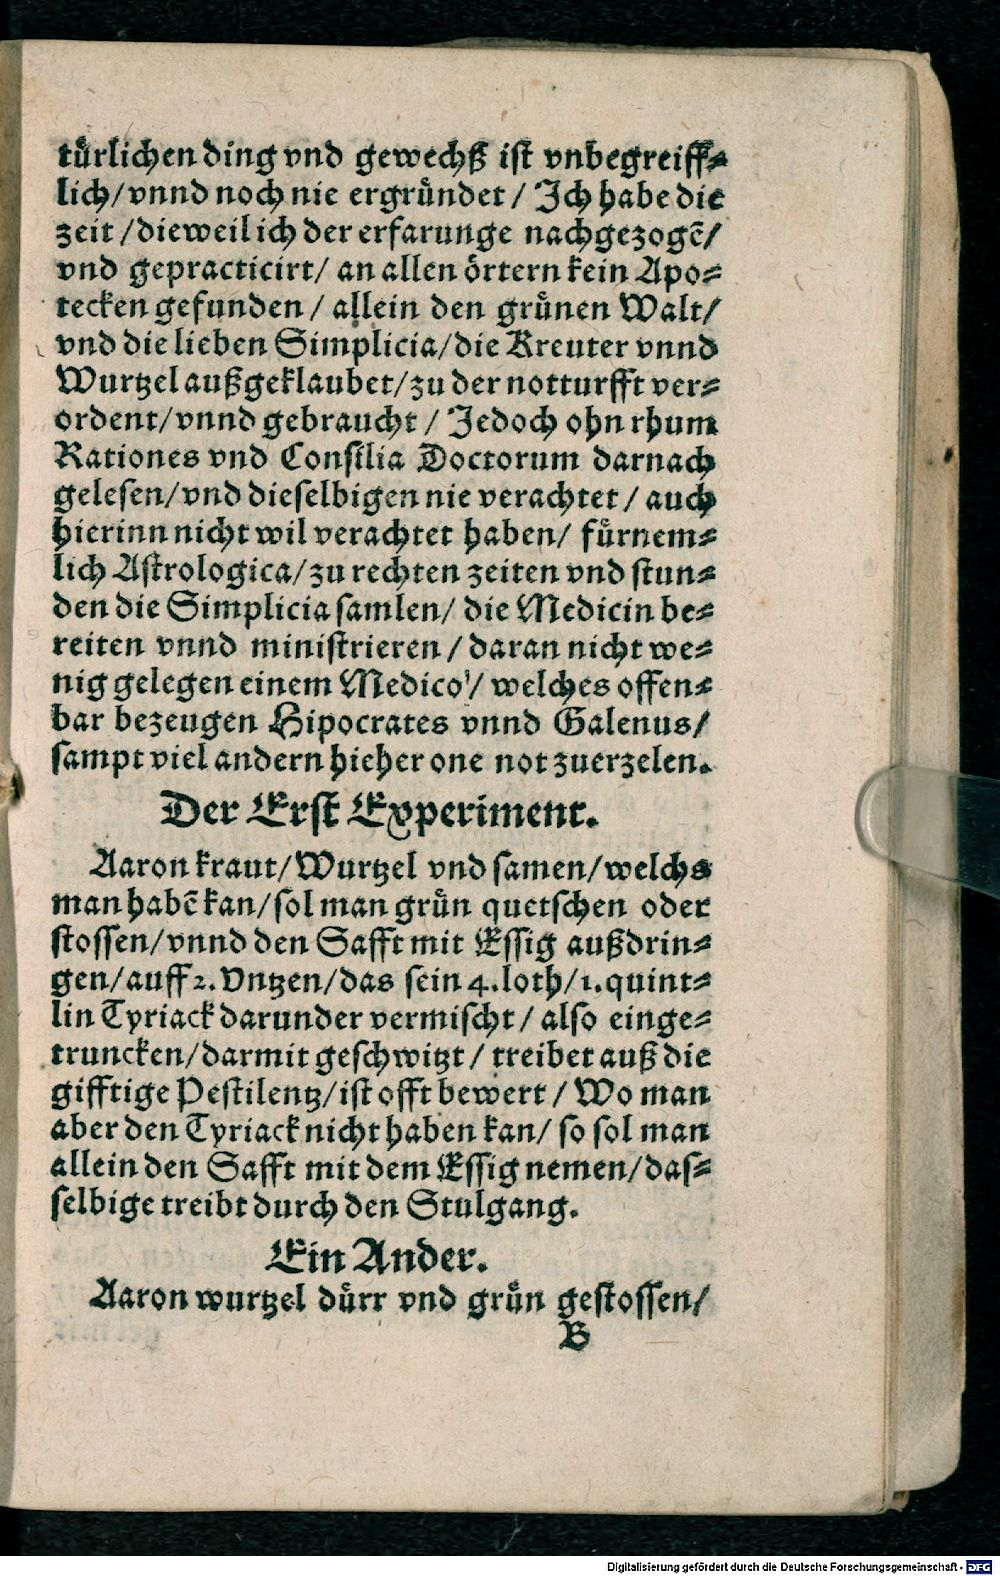 türlichen ding vnd gewechß ist vnbegreiff-
lich/ vnnd noch nie ergründet / Ich habe die
zeit / dieweil ich der erfarunge nachgezogẽ/
vnd gepracticirt/ an allen örtern kein Apo-
tecken gefunden / allein den grünen Walt/
vnd die lieben Simplicia/ die Kreuter vnnd
Wurtzel außgeklaubet/ zu der notturfft ver-
ordent/ vnnd gebraucht / Jedoch ohn rhum
Rationes vnd Consilia Doctorum darnach
gelesen/ vnd dieselbigen nie verachtet / auch
hierinn nicht wil verachtet haben/ fürnem-
lich Astrologica/ zu rechten zeiten vnd stun-
den die Simplicia samlen/ die Medicin be-
reiten vnnd ministrieren / daran nicht we-
nig gelegen einem Medico / welches offen-
bar bezeugen Hipocrates vnnd Galenus/
sampt viel andern hieher one not zuerzelen.
Der Erst Experiment.
Aaron kraut/ Wurtzel vnd samen/ welchs
man habẽ kan/ sol man grün quetschen oder
stossen/ vnnd den Safft mit Essig außdrin-
gen/ auff 2. Vntzen/ das sein 4. loth/ 1. quint-
lin Tyriack darunder vermischt / also einge-
truncken/ darmit geschwitzt / treibet auß die
gifftige Pestilentz/ ist offt bewert / Wo man
aber den Tyriack nicht haben kan/ so sol man
allein den Safft mit dem Essig nemen/ das-
selbige treibt durch den Stulgang.
Ein Ander.
Aaron wurtzel dürr vnd grün gestossen/
B
Digitalisierung gefördert durch die Deutsche Forschungsgemeinschaft - DFG